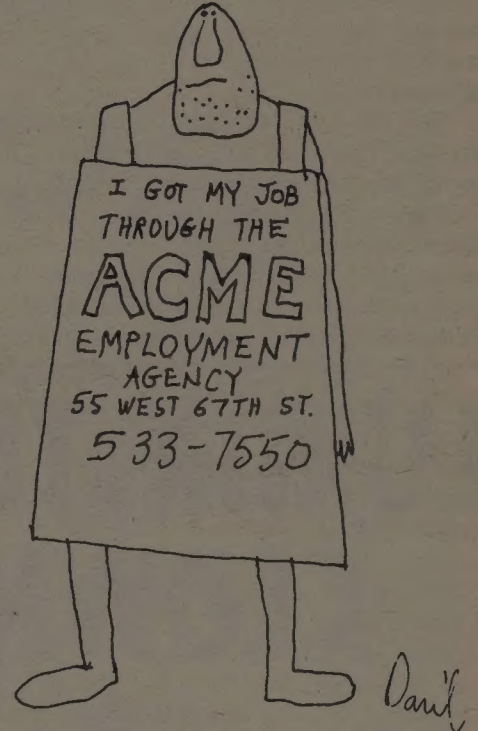 I GOT MY JOB
THROUGH THE
ACME
EMPLOYMENT
AGENCY
55 WEST 67TH ST.
533-7550